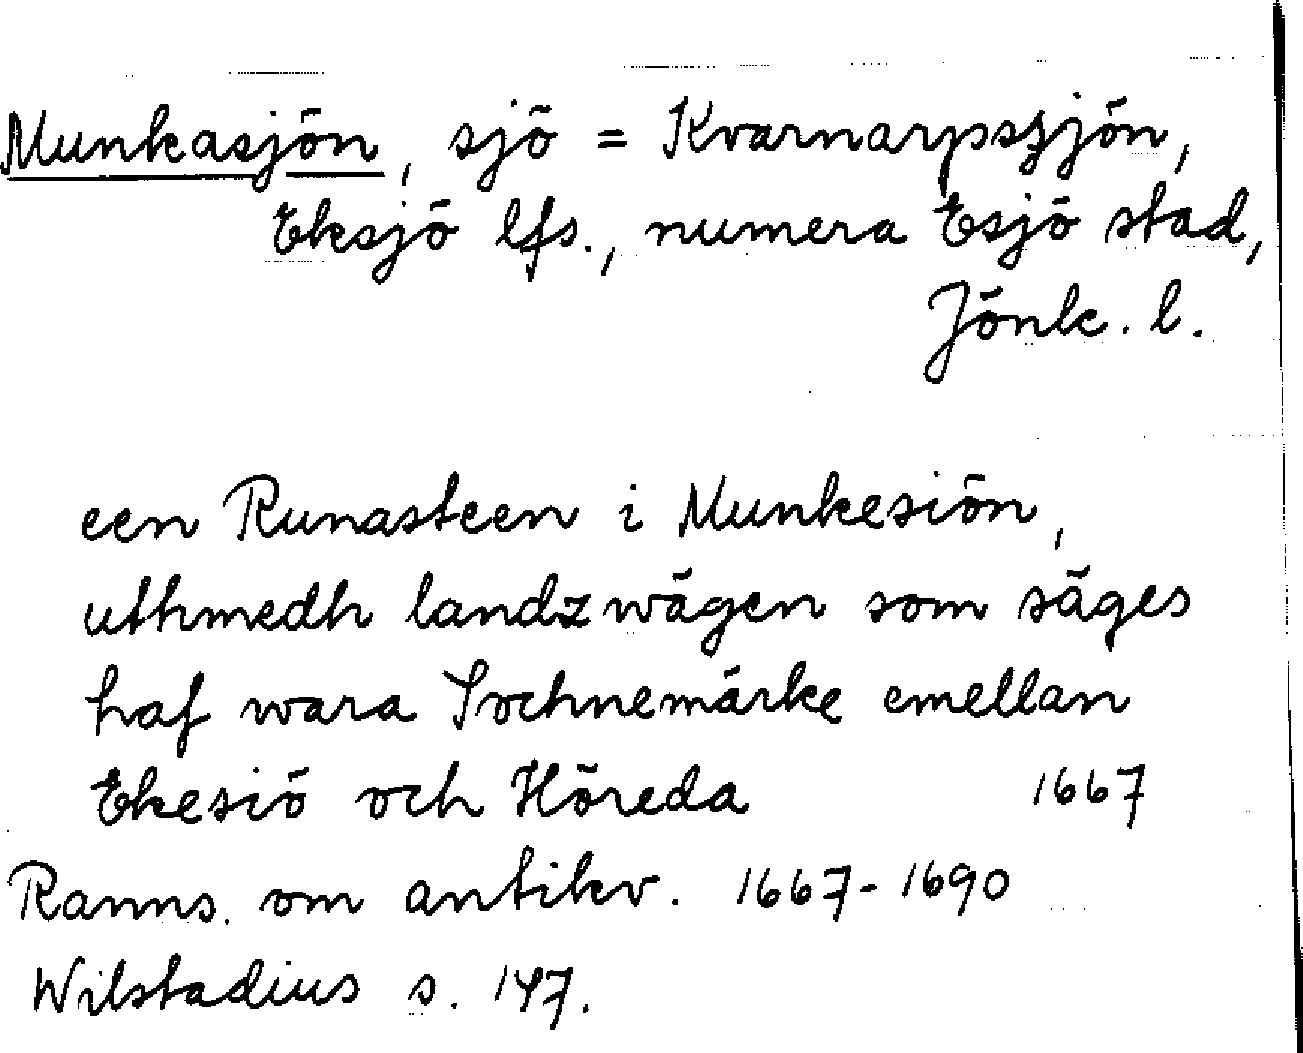 Munkasjön, sjö = Kvarnarpssjön,
Eksjö lfs., numera Esjö stad,
Jönk. l.
een Runasteen i Munkesiön,
uthmedh landzwägen som säges
haf wara Sochnemärke emellan
Ekesiö och Höreda 1667
Ranns. om antikv. 1667-1690
Wilstadius s. 147.